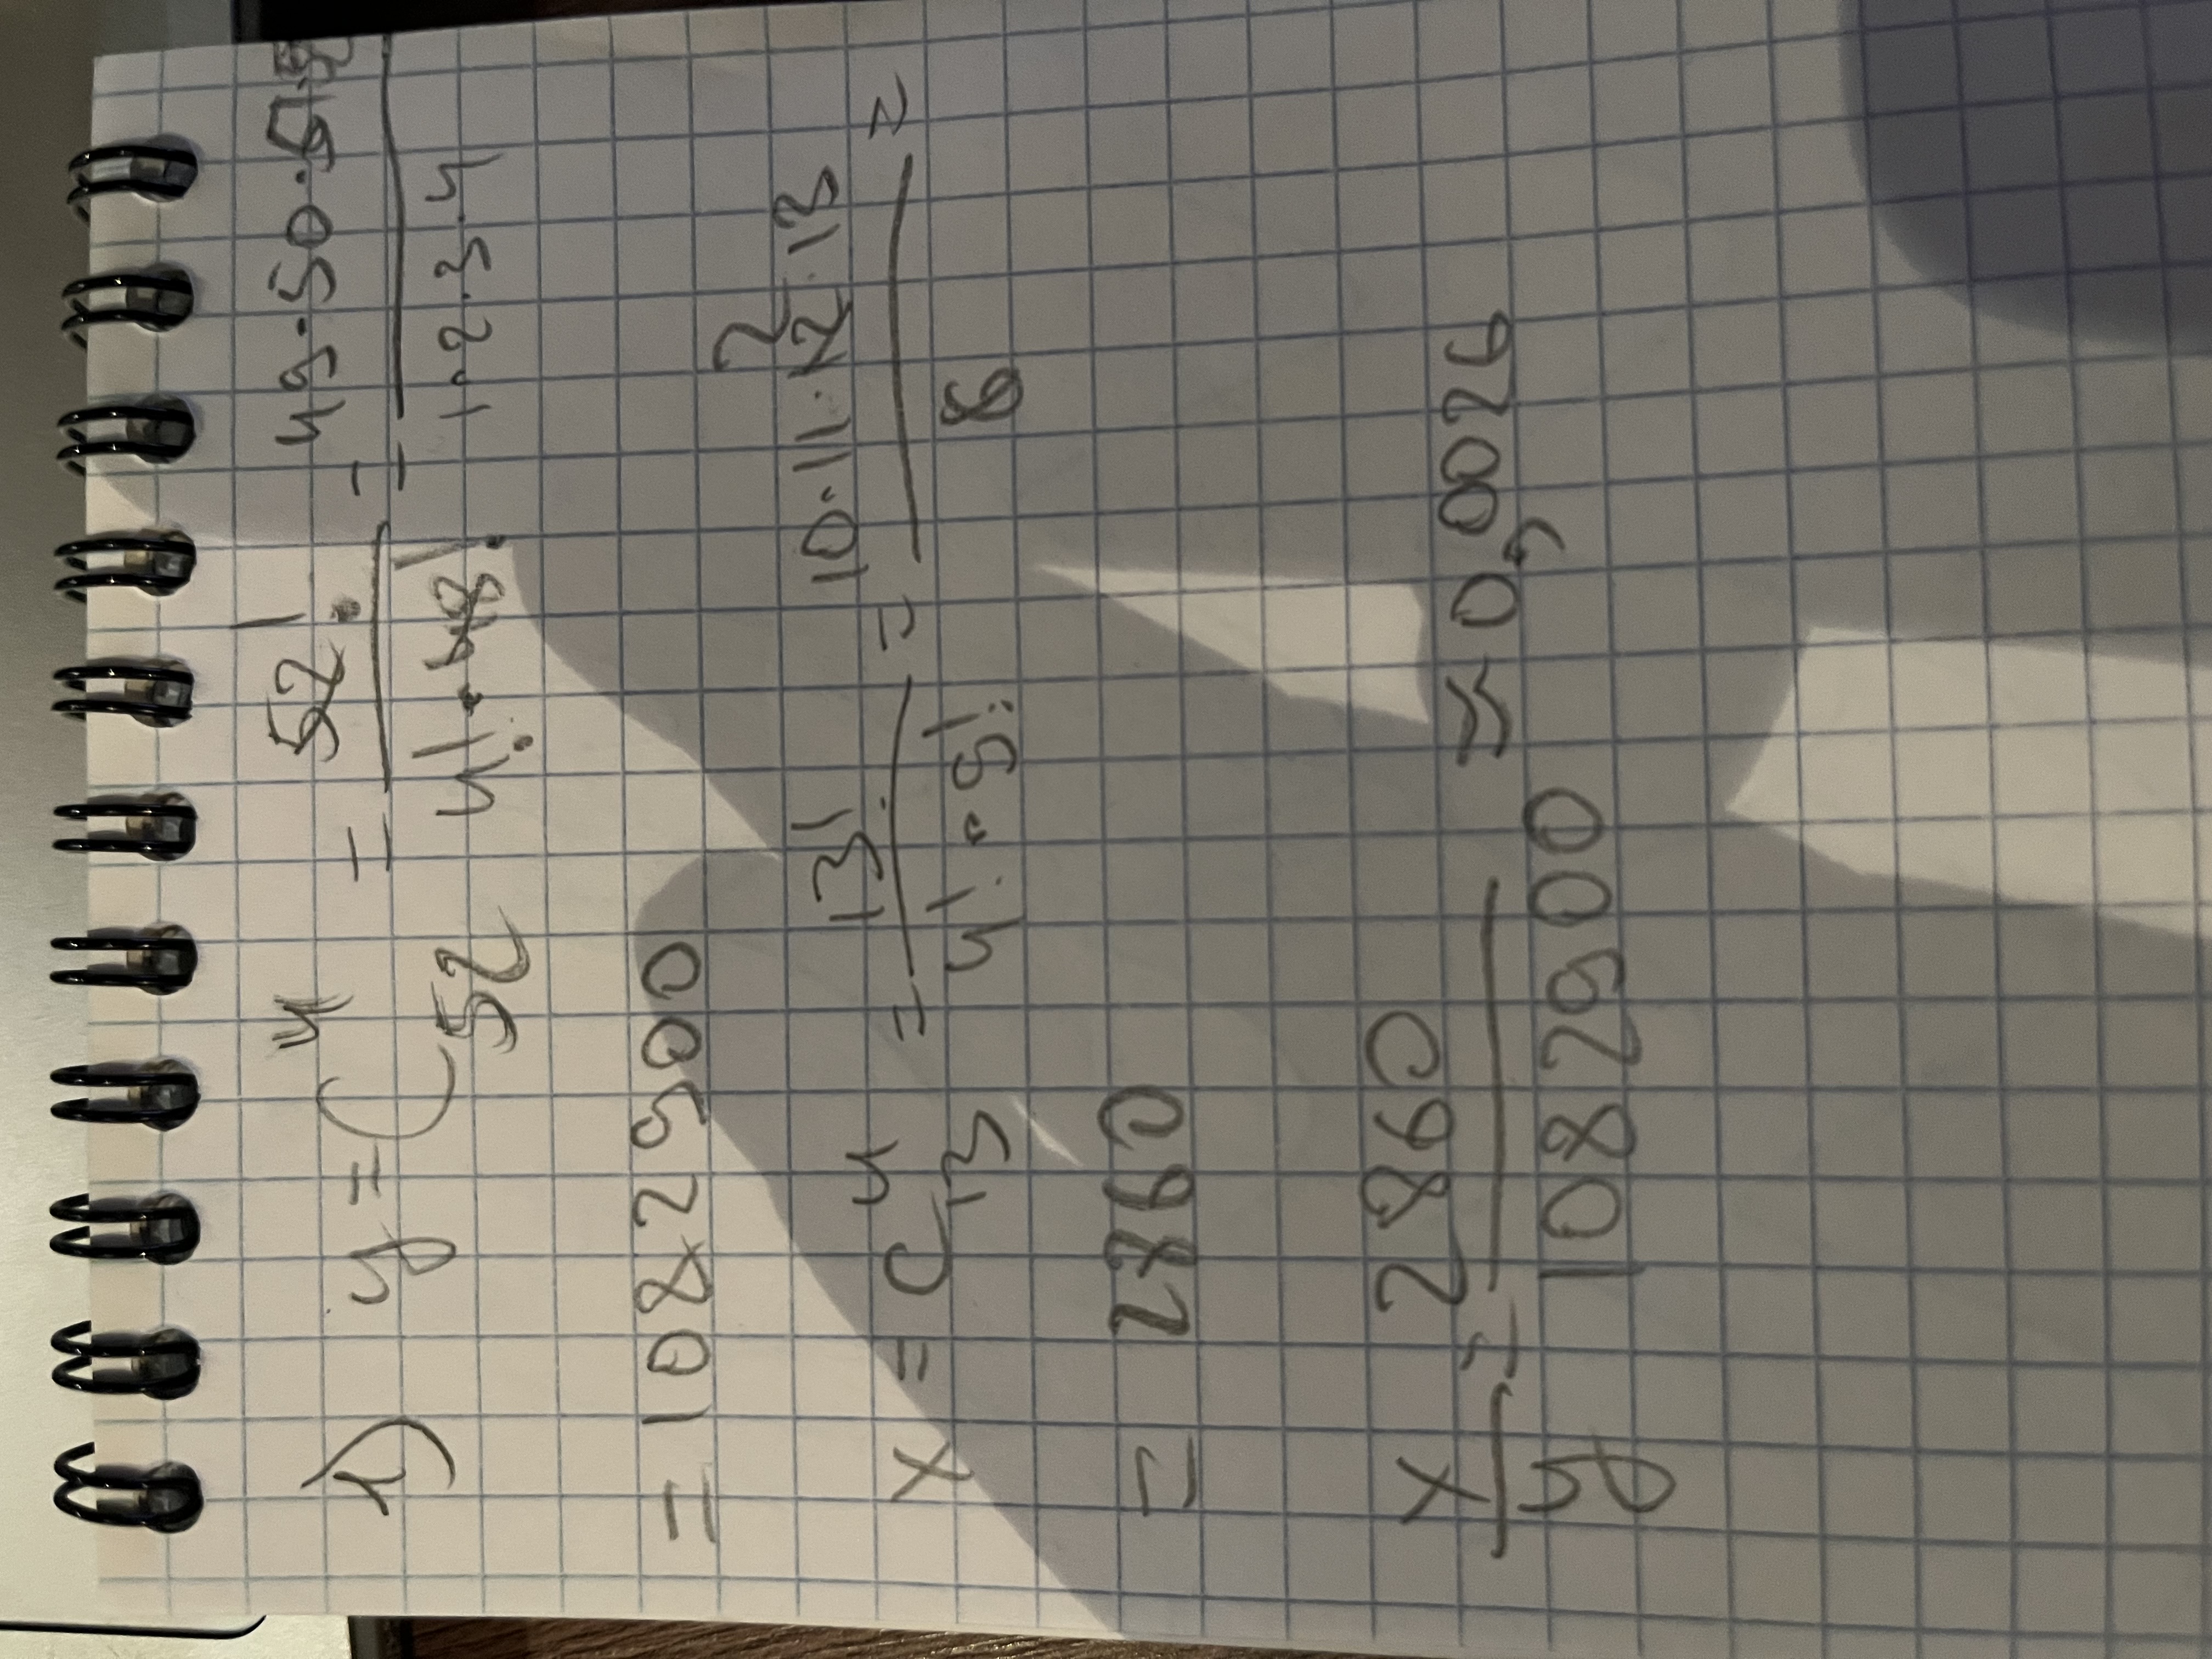 1) y = C⁴₅₂ = 52! / (4! · 48!) = (49 · 50 · 51 · 52) / (1 · 2 · 3 · 4)
= 1082900
x = C⁴₁₃ = 13! / (4! · 9!) = (10 · 11 · 12 2 · 13) / 6 =
= 2860
x/y = 2860 / 1082900 ≈ 0,0026